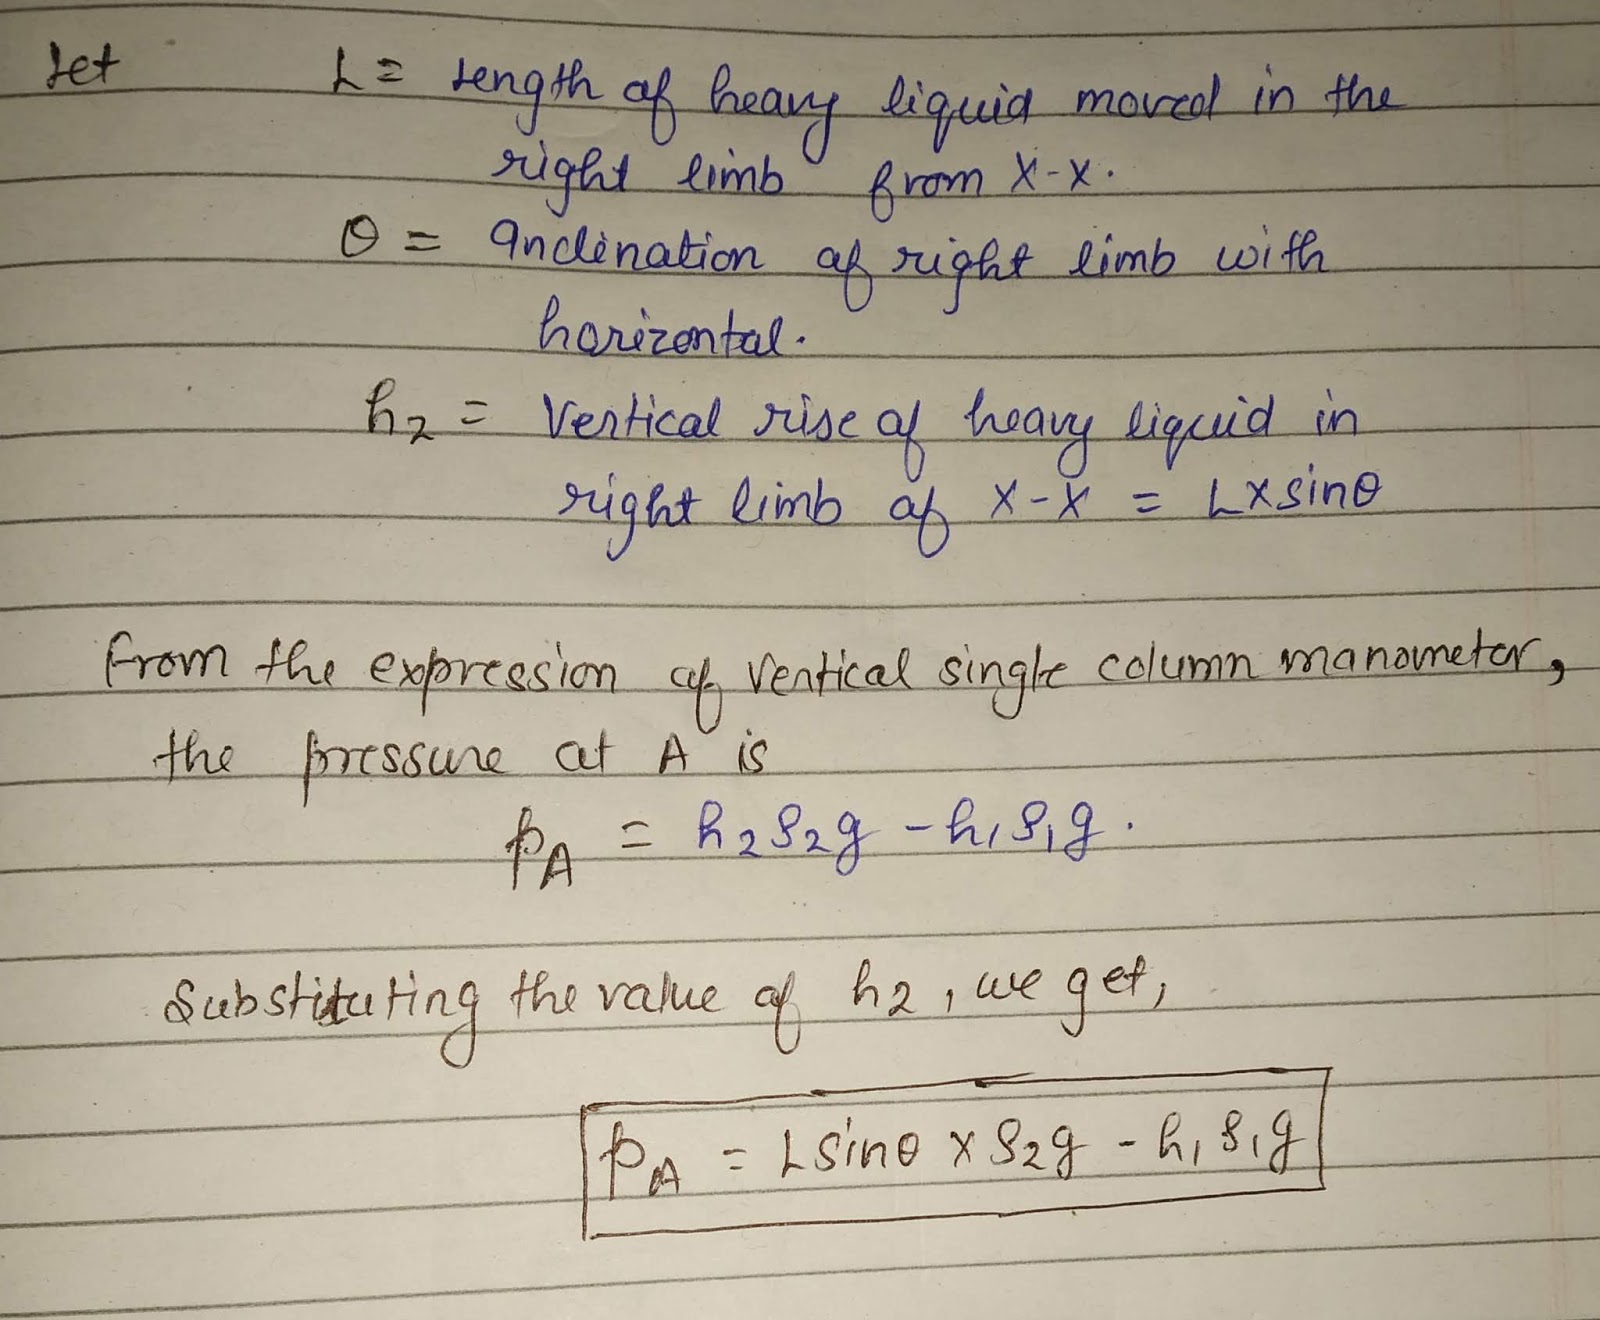 Let L = Length of heavy liquid moved in the
right limb from X-X.
θ = Inclination of right limb with
horizontal.
h₂ = Vertical rise of heavy liquid in
right limb of X-X = L×sinθ
From the expression of vertical single column manometer,
the pressure at A is
pA = h₂ρ₂g - h₁ρ₁g.
Substituting the value of h₂, we get,
pA = L sinθ × ρ₂g - h₁ρ₁g